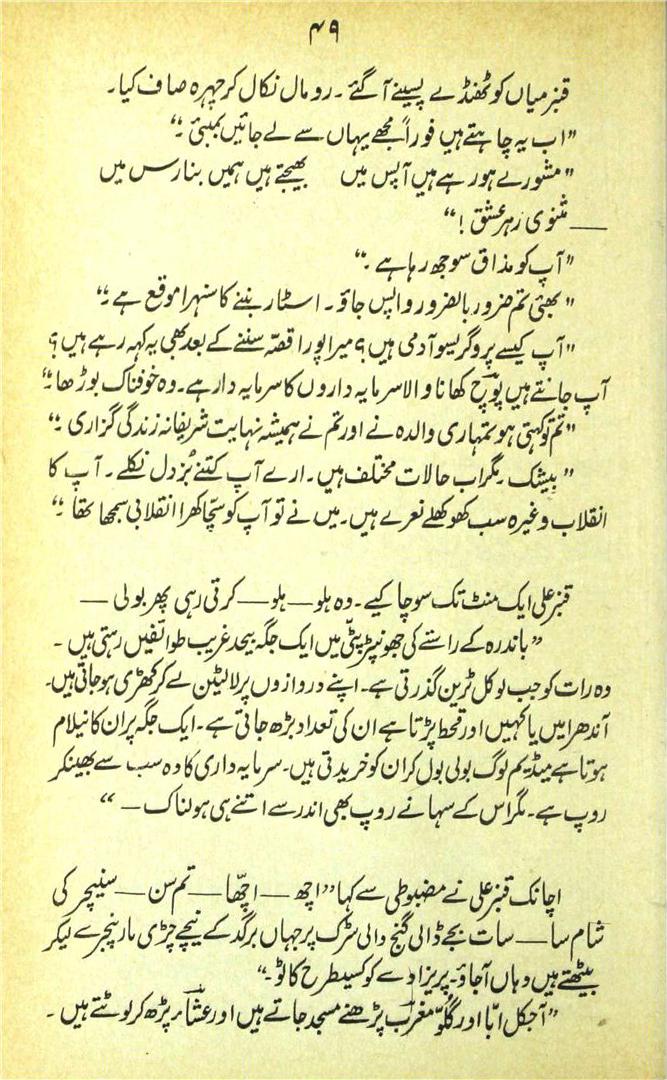 ۴۹
قنبر میاں کو ٹھنڈے پسینے آگئے ۔ رومال نکال کر چہرہ صاف کیا ۔
"اب یہ چاہتے ہیں فوراً مجھے یہاں سے لے جائیں بمبئی ۔"
"مشورے ہو رہے ہیں آپس میں بھیجتے ہیں ہمیں بنارس میں
— مثنوی زہر عشق !"
"آپ کو مذاق سوجھ رہا ہے ۔"
"بھئی تم ضرور بالضرور واپس جاؤ ۔ اسٹار بننے کا سنہرا موقع ہے ۔"
"آپ کیسے پروگریسو آدمی ہیں؟ میرا پورا قصّہ سننے کے بعد بھی یہ کہہ رہے ہیں؟
آپ جانتے ہیں پوچ کھانا والا سرمایہ داروں کا سرمایہ دار ہے ۔ وہ خوفناک بوڑھا ۔"
"تم تو کہتی ہو تمہاری والدہ نے اور تم نے ہمیشہ نہایت شریفانہ زندگی گزاری ۔"
"بیشک ۔ مگر اب حالات مختلف ہیں ۔ ارے آپ کتنے بُز دل نکلے ۔ آپ کا
انقلاب وغیرہ سب کھوکھلے نعرے ہیں ۔ میں نے تو آپ کو سچّا کھرا انقلابی سمجھا تھا ۔"
قنبر علی ایک منٹ تک سوچا کیے ۔ وہ ہلو — ہلو — کرتی رہی پھر بولی —
"باندرہ کے راستے کی جھونپڑ پٹّی میں ایک جگہ بیحد غریب طوائفیں رہتی ہیں ۔
وہ رات کو جب لوکل ٹرین گذرتی ہے ۔ اپنے دروازوں پر لالٹین لے کر کھڑی ہو جاتی ہیں ۔
آندھرا میں یا کہیں اور قحط پڑتا ہے ان کی تعداد بڑھ جاتی ہے ۔ ایک جگہ پر ان کا نیلام
ہوتا ہے میڈیم لوگ بولی بول کر ان کو خریدتی ہیں ۔ سرمایہ داری کا وہ سب سے بھینکر
روپ ہے ۔ مگر اس کے سہانے روپ بھی اندر سے اتنے ہی ہولناک — "
اچانک قنبر علی نے مضبوطی سے کہا "اچھ — اچھّا — تم سن — سنیچر کی
شام سا — سات بجے ڈالی گنج والی سڑک پر جہاں برگد کے نیچے چڑی مار پنجرے لیکر
بیٹھتے ہیں وہاں آجاؤ ۔ پریزادے کو کسیطرح کاٹو ۔"
"آجکل ابّا اور گلّو مغرب پڑھنے مسجد جاتے ہیں اور عشاء پڑھ کر لوٹتے ہیں ۔